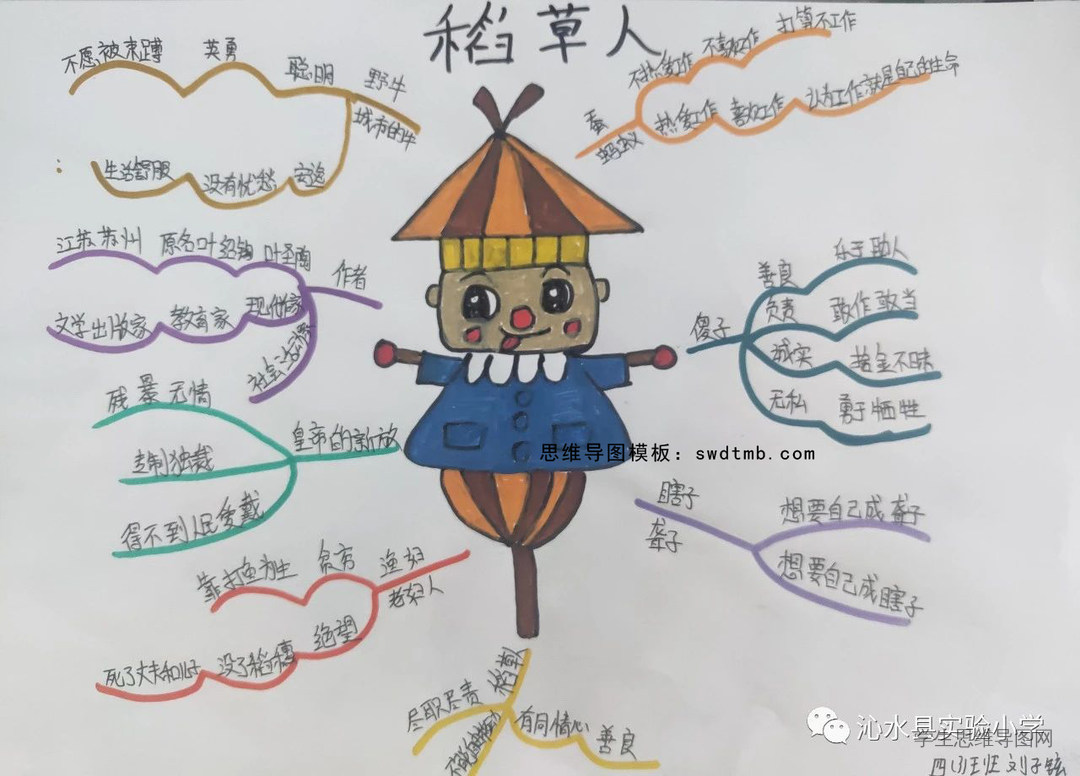 稻草人
不愿被束蹲
英勇
聪明
野牛
城市的牛
生活舒服
没有忧愁
安逸
不热爱工作
不喜欢工作
打算不工作
蚕
蚂蚁
热爱工作
喜欢工作
认为工作就是自己的生命
江苏苏州
原名叶绍钧
叶圣陶
作者
文学出版家
教育家
现代作家
残暴无情
皇帝的新衣
专制独裁
得不到人民爱戴
靠打鱼为生
贫穷
渔妇
老妇人
死了丈夫和儿子
没了稻穗
绝望
傻子
善良
乐于助人
负责
敢作敢当
诚实
拾金不昧
无私
勇于牺牲
思维导图模板：swdtmb.com
瞎子
聋子
想要自己成聋子
想要自己成瞎子
稻草人
尽职尽责
有同情心
善良
沁水县实验小学
学生思维导图网